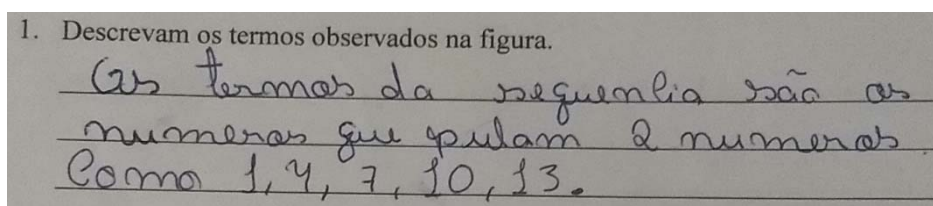 1. Descrevam os termos observados na figura.
Os termos da sequencia são os
numeros que pulam 2 numeros.
Como 1, 4, 7, 10, 13.